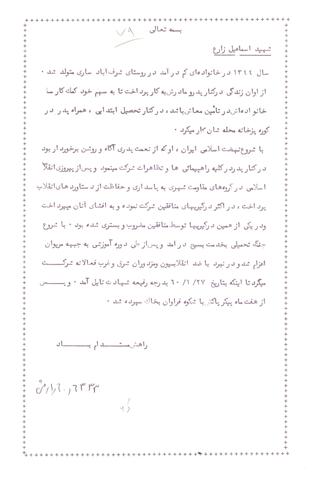 بسمه تعالی
۷۸
شهید اسماعیل زارع
سال ۱۳۴۴ در خانواده‌ای کم در آمد در روستای شرف‌آباد ساری متولد شد .
از اوان زندگی در کنار پدر و مادرش به کار پرداخت تا به سهم خود کمک کار
خانواده‌اش در تأمین معاش باشد، در کنار تحصیل ابتدایی ، همراه پدر در
کوره پزخانه محله شان کار میکرد .
با شروع نهضت اسلامی ایران ، او که از نعمت پدری آگاه و روشن برخوردار بود
در کنار پدر در کلیه راهپیمائی ها و تظاهرات شرکت مینمود و پس از پیروزی انقلاب
اسلامی در گروههای مقاومت شهری به پاسداری و حفاظت از دستاوردهای انقلاب
پرداخت ، در اکثر درگیریهای منافقین شرکت نموده و به افشای آنان میپرداخت
و در یکی از همین درگیریها توسط منافقین مضروب و بستری شده بود . با شروع
جنگ تحمیلی بخدمت بسیج در آمد و پس از طی دوره آموزشی به جبهه مریوان
اعزام شد و در نبرد با ضد انقلابیون و مزدوران شرق و غرب فعالانه شرکت
میکرد تا اینکه بتاریخ ۶۰/۱/۲۷ بدرجه رفیعه شهادت نایل آمد . و پس
از هفت ماه پیکر پاکش با شکوه فراوان بخاک سپرده شد .
راهش مستدام باد